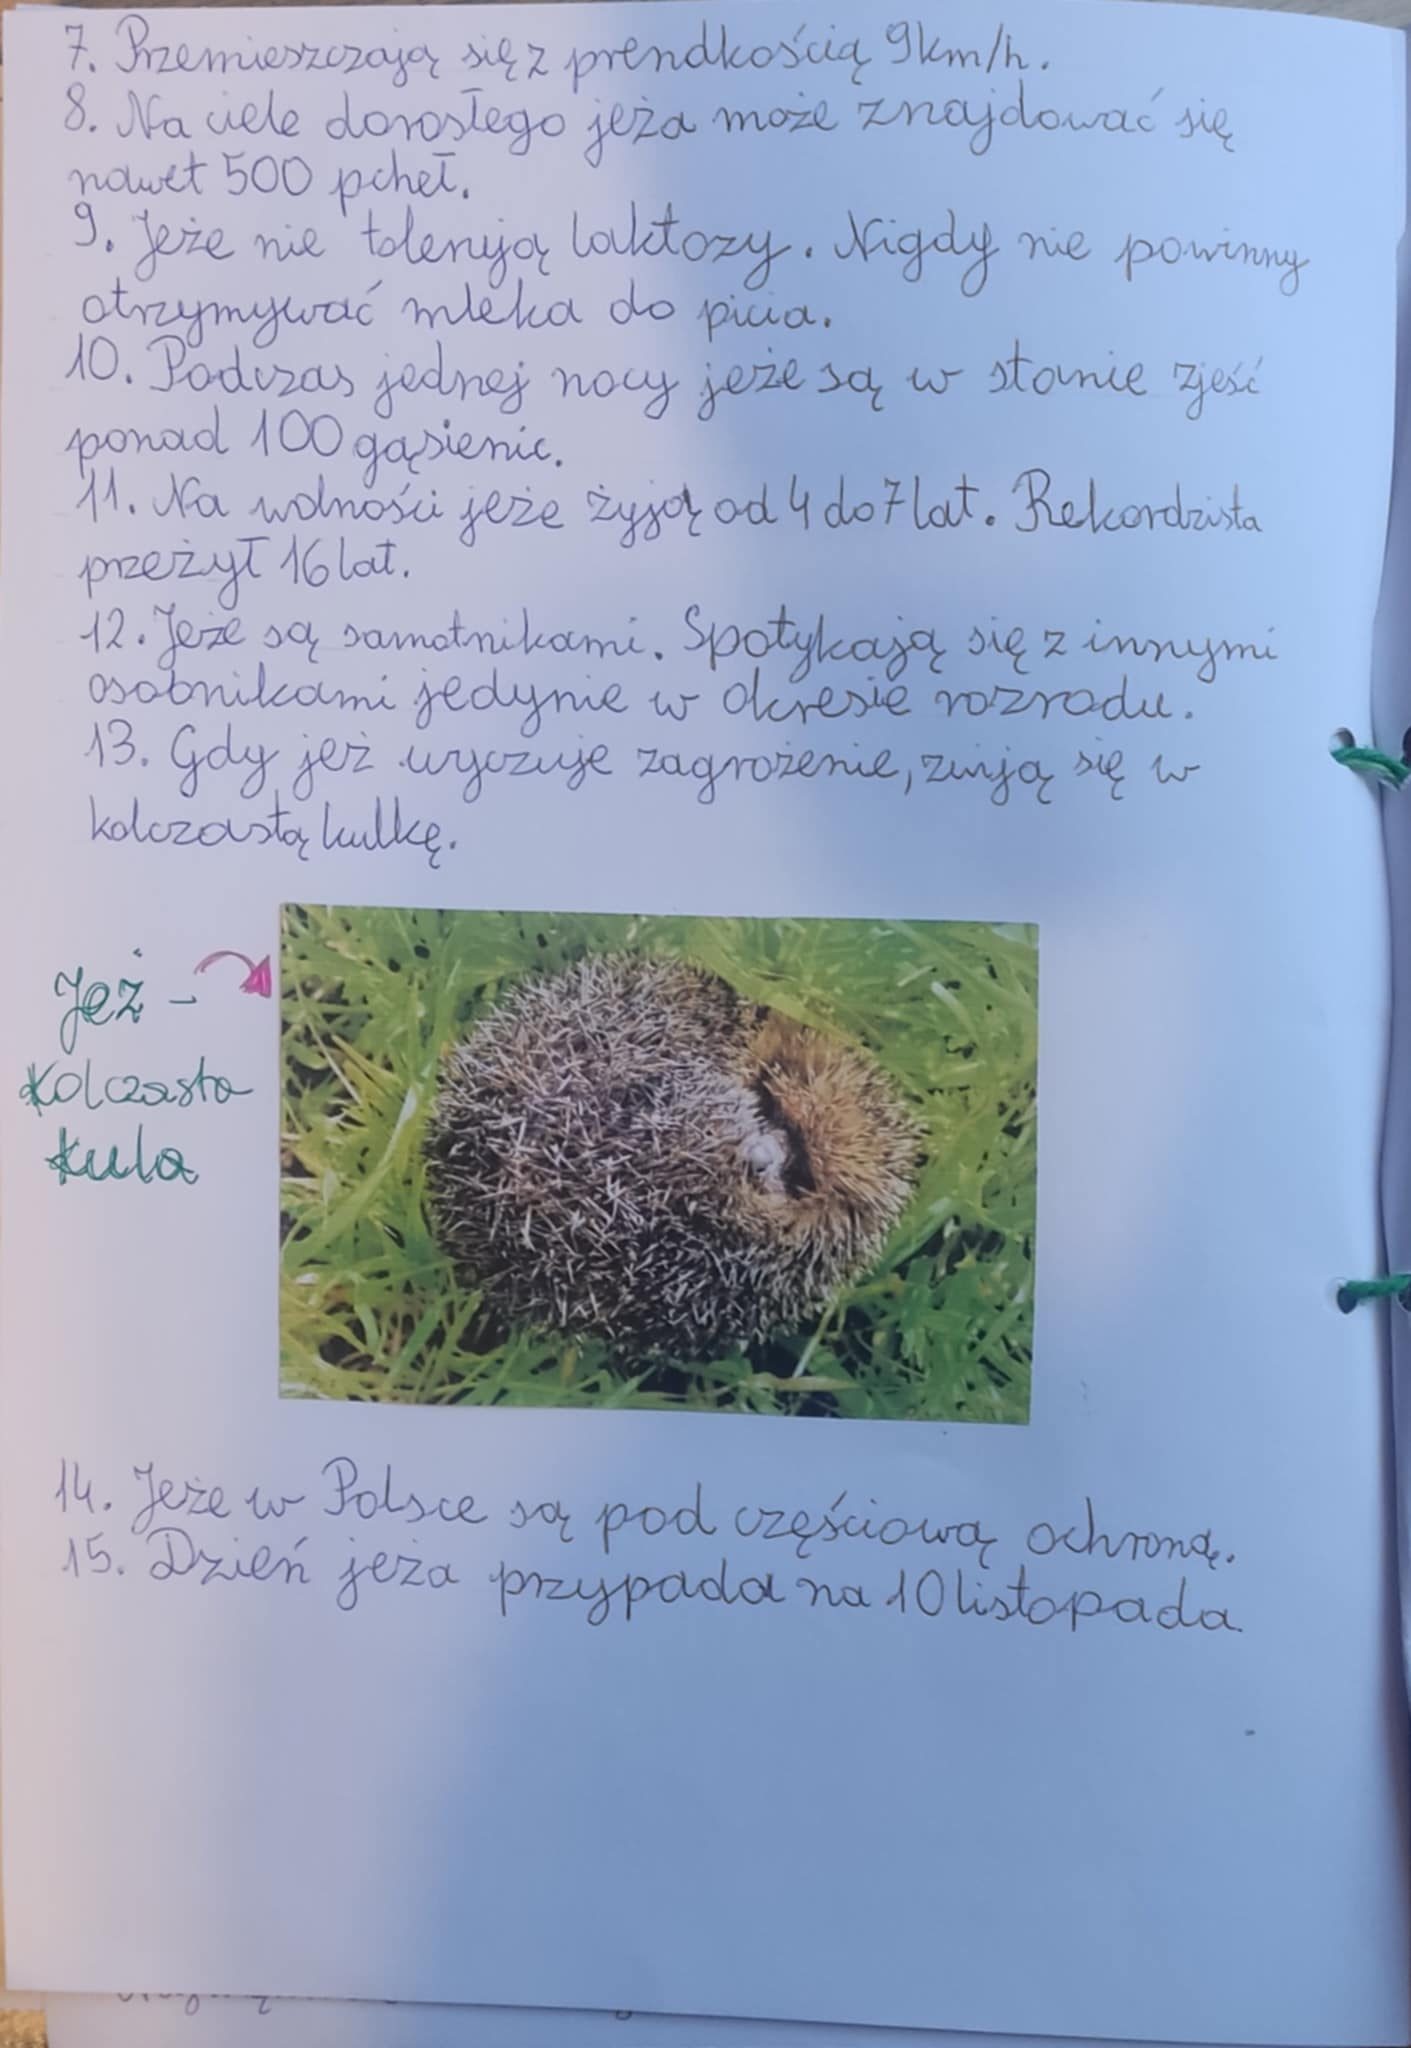 7. Przemieszczają się z prendkością 9km/h.
8. Na ciele dorosłego jeża może znajdować się
nawet 500 pcheł.
9. Jeże nie tolerują laktozy. Nigdy nie powinny
otrzymywać mleka do picia.
10. Podczas jednej nocy jeże są w stanie zjeść
ponad 100 gąsienic.
11. Na wolności jeże żyją od 4 do 7 lat. Rekordzista
przeżył 16 lat.
12. Jeże są samotnikami. Spotykają się z innymi
osobnikami jedynie w okresie rozrodu.
13. Gdy jeż wyczuje zagrożenie, zwija się w
kolczastą kulkę.
Jeż -
kolczasta
kula
14. Jeże w Polsce są pod częściową ochroną.
15. Dzień jeża przypada na 10 listopada